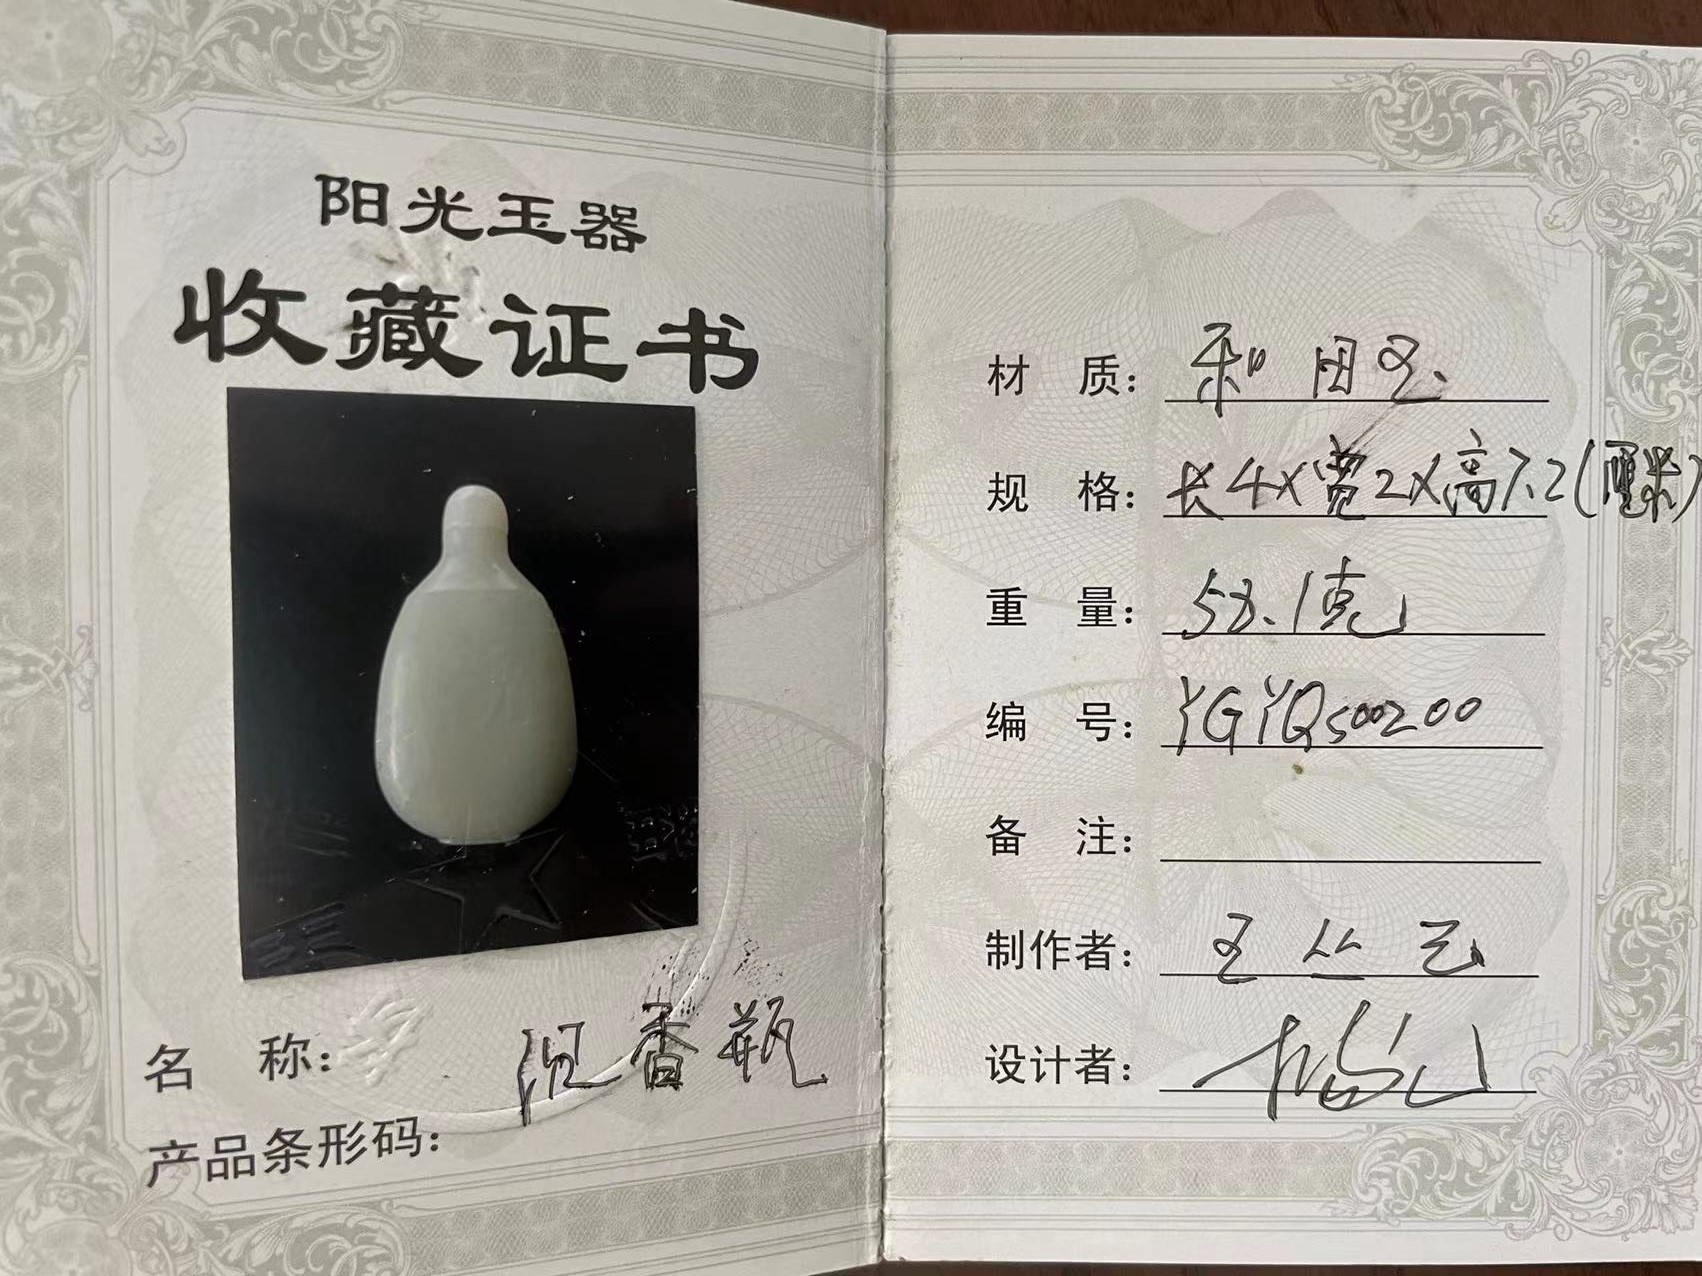 阳光玉器
收藏证书
名 称: 沉香瓶
产品条形码:
材 质: 和田玉
规 格: 长4X宽2X高7.2(厘米)
重 量: 58.1克
编 号: YGYQS00200
备 注:
制作者:
设计者: